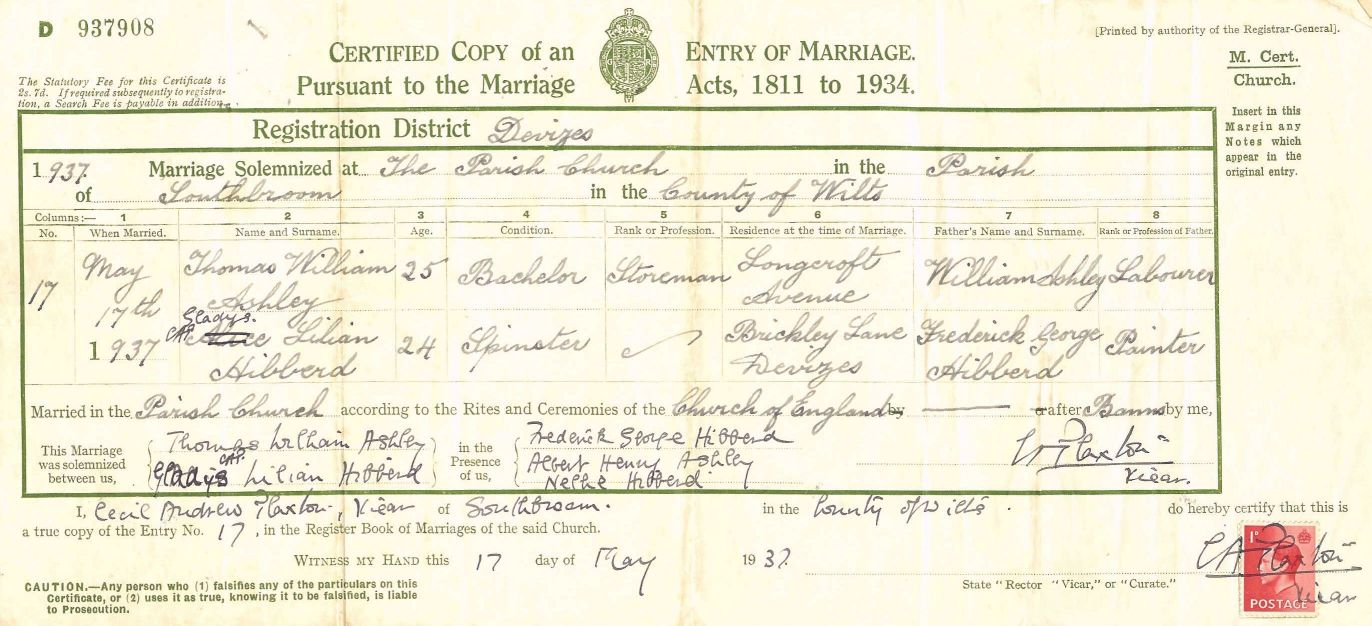 D 937908
[Printed by authority of the Registrar-General].
CERTIFIED COPY of an ENTRY OF MARRIAGE.
Pursuant to the Marriage Acts, 1811 to 1934.
M. Cert.
Church.
The Statutory Fee for this Certificate is
2s. 7d. If required subsequently to registra-
tion, a Search Fee is payable in addition.
Insert in this
Margin any
Notes which
appear in the
original entry.
Registration District Devizes
1937. Marriage Solemnized at The Parish Church in the Parish
of Southbroom in the County of Wilts
Columns:— 1 2 3 4 5 6 7 8
No. When Married. Name and Surname. Age. Condition. Rank or Profession. Residence at the time of Marriage. Father's Name and Surname. Rank or Profession of Father.
17 May 17th 1937
Thomas William Ashley 25 Bachelor Storeman Longcroft Avenue William Ashley Labourer
Gladys. CAP. Lilian Hibberd 24 Spinster Brickley Lane Devizes Frederick George Hibberd Painter
Married in the Parish Church according to the Rites and Ceremonies of the Church of England by or after Banns by me,
This Marriage was solemnized between us,
Thomas William Ashley
Gladys CAP. Lilian Hibberd
in the Presence of us,
Frederick George Hibberd
Albert Henry Ashley
Nellie Hibberd
CA Plaxton
Vicar.
I, Cecil Andrew Plaxton, Vicar of Southbroom. in the County of Wilts. do hereby certify that this is
a true copy of the Entry No. 17, in the Register Book of Marriages of the said Church.
WITNESS MY HAND this 17 day of May 1937.
CA Plaxton
Vicar
State "Rector "Vicar," or "Curate."
CAUTION.—Any person who (1) falsifies any of the particulars on this
Certificate, or (2) uses it as true, knowing it to be falsified, is liable
to Prosecution.
1D
POSTAGE